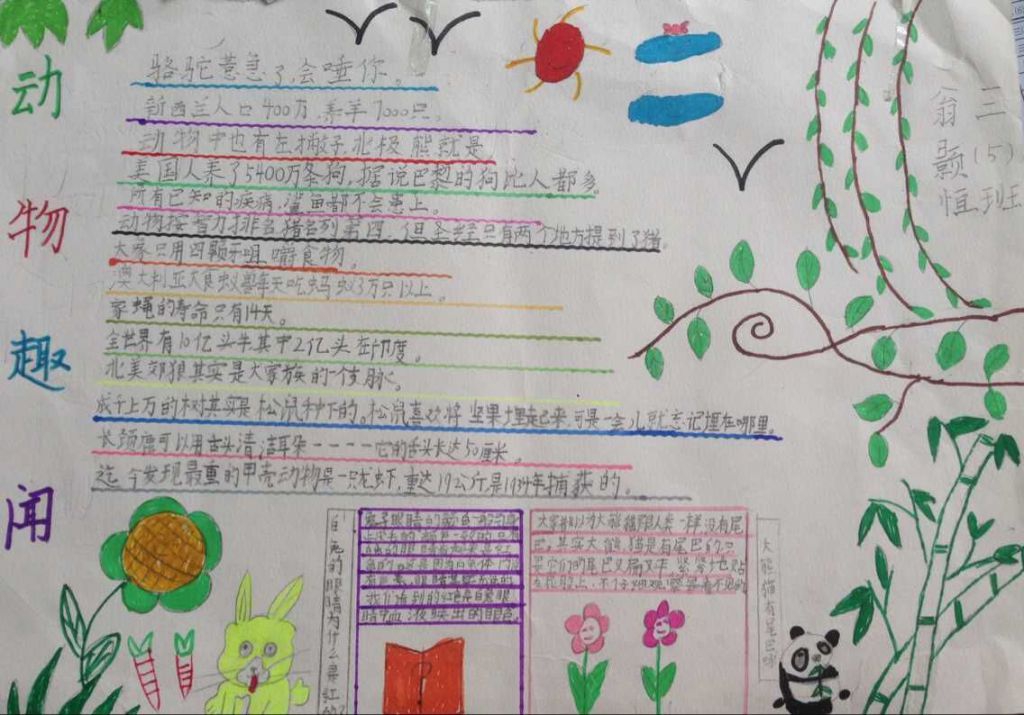 动
物
趣
闻
骆驼惹急了,会唾你。
新西兰人口400万,养羊7000只。
动物中也有左撇子,北极熊就是
美国人养了5400万条狗,据说巴黎的狗比人都多。
所有已知的疾病,鲨鱼都不会患上。
动物按智力排名猪名列第四,但圣经只有两个地方提到了猪。
大象只用四颗牙咀嚼食物。
澳大利亚食蚁兽每天吃蚂蚁3万只以上。
家蝇的寿命只有14天。
全世界有10亿头牛其中2亿头在印度。
北美郊狼其实是犬家族的一个支脉。
成千上万的树其实是松鼠种下的。松鼠喜欢将坚果埋起来,可是一会儿就忘记埋在哪里。
长颈鹿可以用舌头清洁耳朵----它的舌头长达50厘米。
迄今发现最重的甲壳动物是一只龙虾,重达19公斤是1934年捕获的。
翁颢恒
三(5)班
兔的眼睛为什么是红的?
兔子眼睛的颜色
我们看到的红色是
睛中血液
大家都以为大熊猫跟人类一样,没有尾
巴。其实大熊猫是有尾巴的。只
是它们的尾巴又扁又平,紧紧地贴
在屁股上,不仔细观察是看不见的
大熊猫有尾巴吗
?